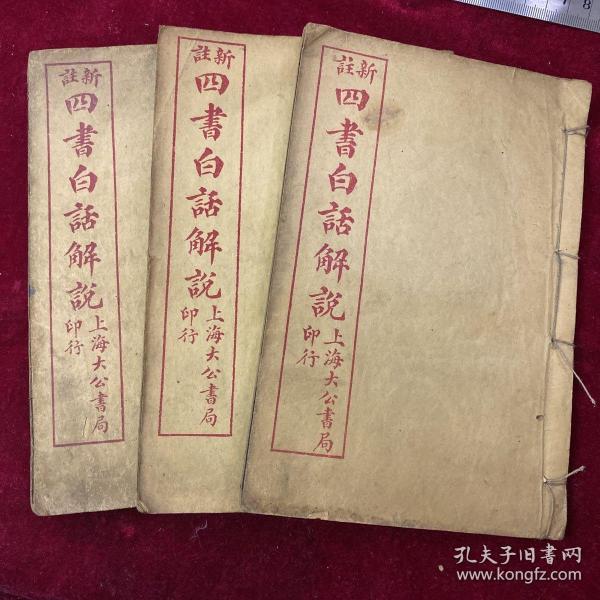 新註
四書白話解說
上海大公書局
印行
新註
四書白話解說
上海大公書局
印行
新註
四書白話解說
上海大公書局
印行
7
8
孔夫子旧书网
www.kongfz.com